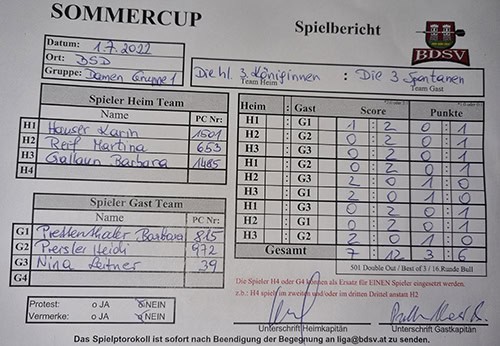 SOMMERCUP
Spielbericht
BDSV
Datum: 1.7.2022
Ort: BSD
Gruppe: Damen Gruppe 1
Die hl. 3. Königinnen : Die 3-Spontanen
Team Heim Team Gast
Spieler Heim Team
Name PC Nr:
H1 Hauser Karin 1501
H2 Reif Martina 653
H3 Gallaun Barbara 1485
H4
Spieler Gast Team
Name PC Nr:
G1 Prettenthaler Barbara 815
G2 Piersler Heidi 972
G3 Nina Leitner 39
G4
Protest: o JA ⊗ NEIN
Vermerke: o JA ⊗ NEIN
Heim : Gast Score Punkte
H1 : G1 1 : 2 0 : 1
H2 : G2 0 : 2 0 : 1
H3 : G3 0 : 2 0 : 1
H2 : G1 0 : 2 0 : 1
H3 : G2 2 : 0 1 : 0
H1 : G3 2 : 0 1 : 0
H3 : G1 0 : 2 0 : 1
H1 : G2 0 : 2 0 : 1
H2 : G3 2 : 0 1 : 0
Gesamt 7 : 12 3 : 6
501 Double Out / Best of 3 / 16.Runde Bull
Die Spieler H4 oder G4 können als Ersatz für EINEN Spieler eingesetzt werden.
z.b.: H4 spielt im zweiten und/oder im dritten Drittel anstatt H2
Unterschrift Heimkapitän Unterschrift Gastkapitän
Das Spielprotokoll ist sofort nach Beendigung der Begegnung an liga@bdsv.at zu senden.